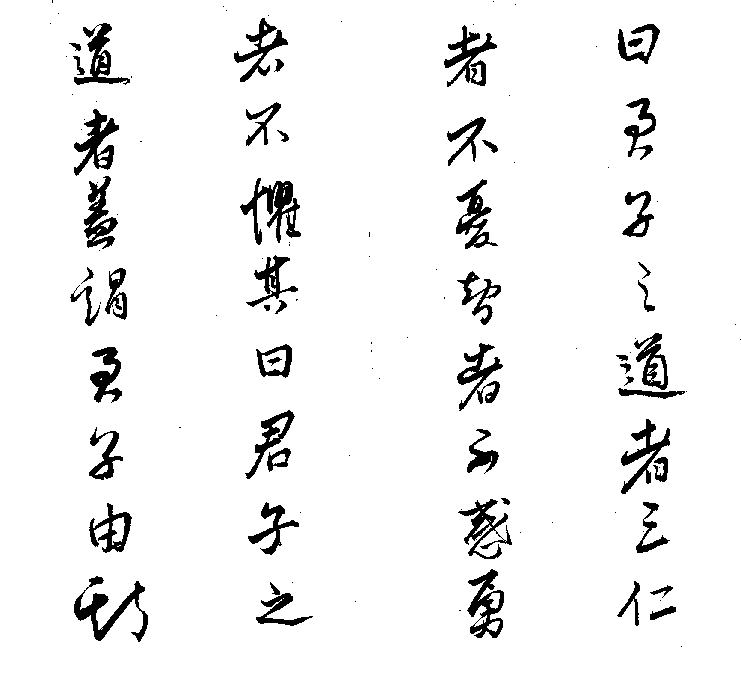 曰君子之道者三仁
者不憂智者不惑勇
者不懼其曰君子之
道者蓋謂君子由斯